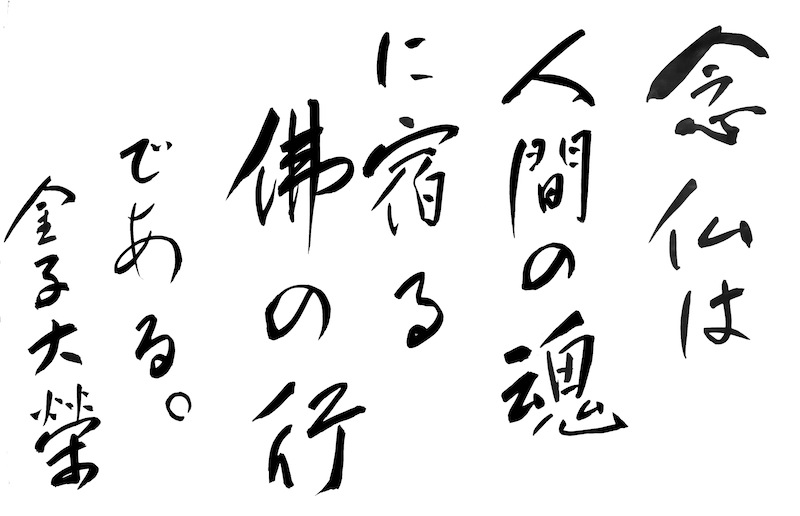 念仏は
人間の魂
に宿る
佛の行
である。
金子大榮